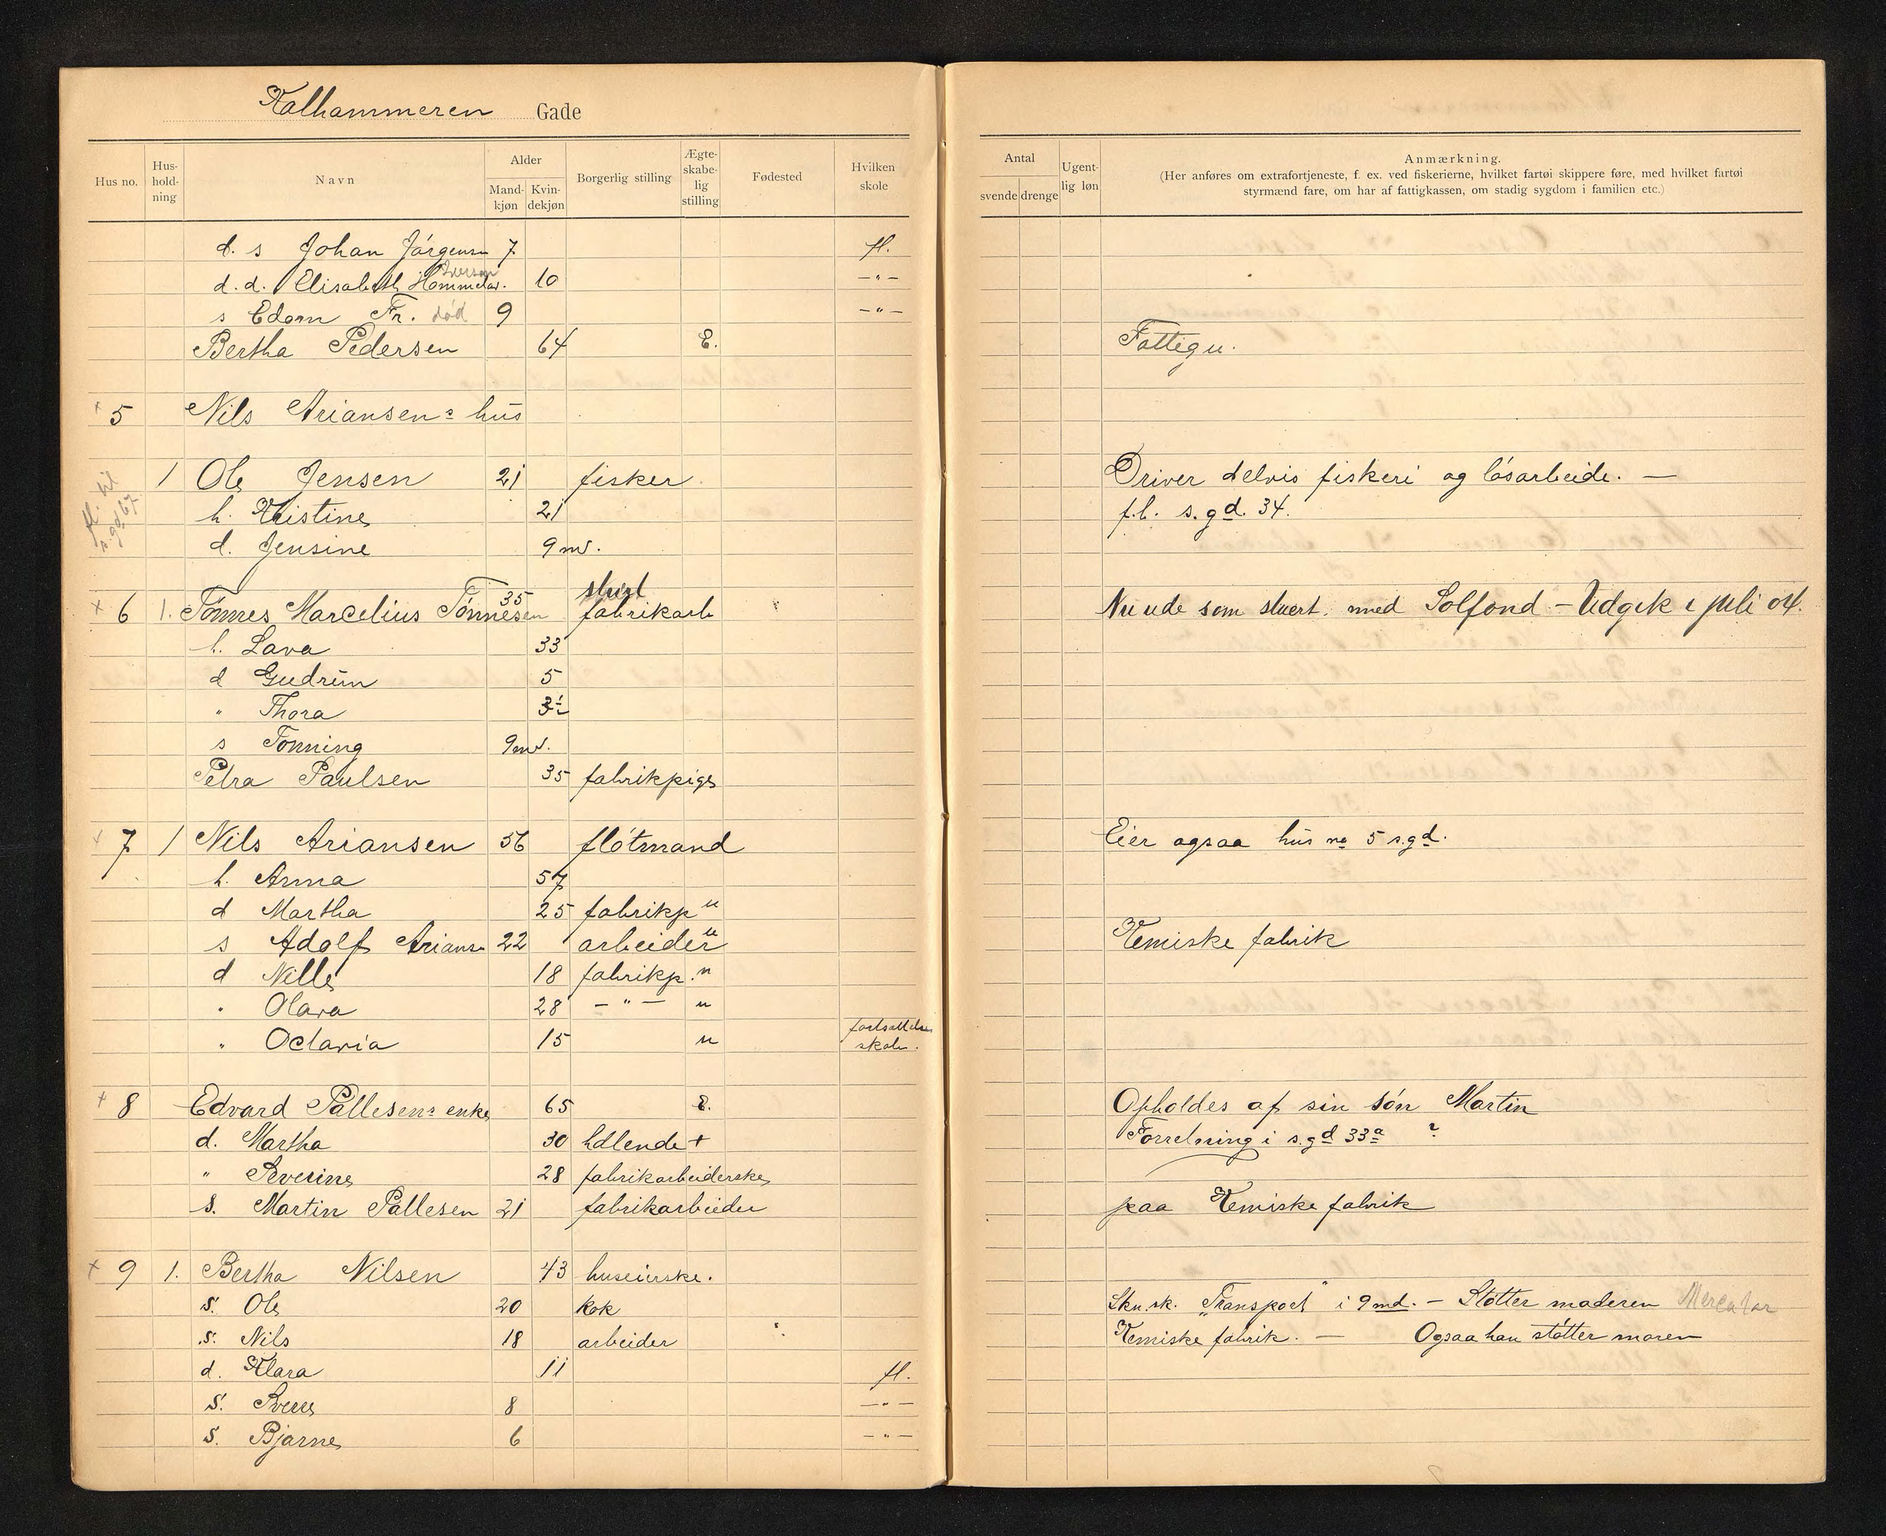 Kalhammeren Gade
Hus no. Hus-hold-ning Navn Alder Mand-kjøn Kvin-dekjøn Borgerlig stilling Ægte-skabe-lig stilling Fødested Hvilken skole
Antal svende drenge Ugent-lig løn Anmærkning.
(Her anføres om extrafortjeneste, f. ex. ved fiskerierne, hvilket fartøi skippere føre, med hvilket fartøi
styrmænd fare, om har af fattigkassen, om stadig sygdom i familien etc.)
d. s Johan Jørgensen 7 fl.
Iversen
d. d. Elisabeth 10 -"-
s Edom Fr. død 9 -"-
Bertha Pedersen 64 E. Fattigu.
5 Nils Ariansens hus
1 Ole Jensen 21 fisker Driver delvis fiskeri og løsarbeide. —
fl. til s. gd. 67
h. Kristine 21 f.b. s.gd. 34.
d. Jensine 9 md.
stuert
6 1. Tønnes Marcelius Tønnesen 35 fabrikarb Nu ude som stuert med Solfond – Udgik i juli 04.
h. Lava 33
d Gudrun 5
" Thora 3½
s Tønning 9 md.
Petra Paulsen 35 fabrikpige
7 1 Nils Ariansen 56 fløtmand Eier ogsaa hus no 5 s.gd.
h. Anna 57
d Martha 25 fabrikp u
s Adolf Arians 22 arbeider u Kemiske fabrik
d Nille 18 fabrikp. u
" Olava 28 — " — u
" Octavia 15 u fortsættelses skole.
8 Edvard Pallesens enke 65 E. Opholdes af sin søn Martin
d. Martha 30 hdlende + Forretning i s.gd 33a ?
" Severine 28 fabrikarbeiderske
s. Martin Pallesen 21 fabrikarbeider paa Kemiske fabrik
9 1. Bertha Nilsen 43 huseierske.
s. Ole 20 kok Sku. sk. "Transport" i 9 md. – Støtter moderen Mercator
s. Nils 18 arbeider Kemiske fabrik. — Ogsaa han støtter moren
d. Klara 11 fl.
s. Sverre 8 -"-
s. Bjarne 6 -"-